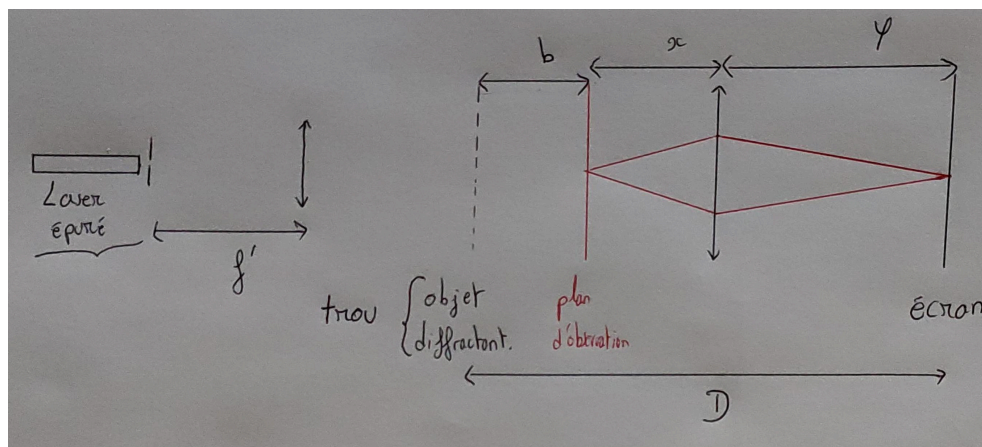 b
x
φ
Laser
épuré
f'
trou
objet
diffractant.
plan
d'obervation
écran
D